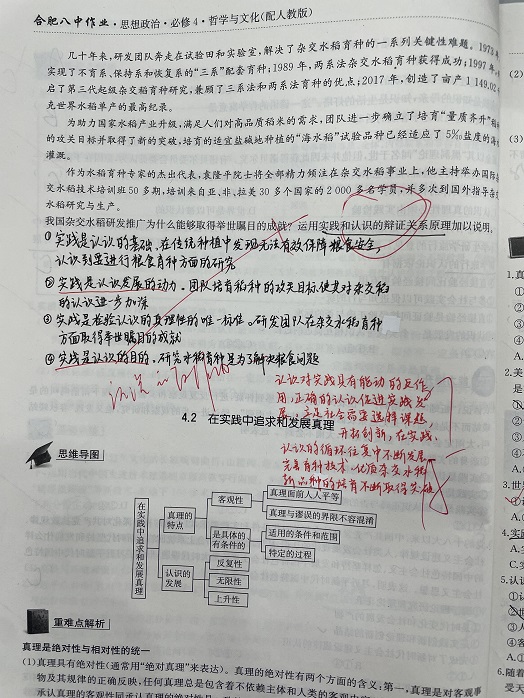 合肥八中作业·思想政治·必修4·哲学与文化(配人教版)
几十年来,研发团队奔走在试验田和实验室,解决了杂交水稻育种的一系列关键性难题。1973年
实现了不育系、保持系和恢复系的“三系”配套育种;1989年,两系法杂交水稻育种获得成功;1997年,
启了第三代超级杂交稻育种研究,兼顾了三系法和两系法育种的优点;2017年,创造了亩产1 149.02
充世界水稻单产的最高纪录。
为助力国家水稻产业升级,满足人们对高品质稻米的需求,团队进一步确立了培育“量质齐升”稻
的攻关目标并取得了新的突破,培育的适宜盐碱地种植的“海水稻”试验品种已经适应了5‰盐度的海水
灌溉。
作为水稻育种专家的杰出代表,袁隆平院士将全部精力倾注在杂交水稻事业上,他主持举办国际杂
交水稻技术培训班50多期,培训来自亚、非、拉美30多个国家的2 000多名学员,并多次到国外指导杂
水稻研究与生产。
我国杂交水稻研发推广为什么能够取得举世瞩目的成就?运用实践和认识的辩证关系原理加以说明。
①实践是认识的基础,在传统种植中发现无法有效保障粮食安全,
认识到要进行粮食育种方面的研究
②实践是认识发展的动力。团队培育稻种的攻关目标,使其对杂交稻
的认识进一步加深
③实践是检验认识的真理性的唯一标准。研发团队在杂交水稻育种
方面取得举世瞩目的成就
④实践是认识的目的,研究水稻育种是为了解决粮食问题
认识对实践具有能动的反作
用,正确的认识促进实践发
展。立足社会需要选择课题,
开拓创新,在实践、
认识的循环往复中不断发展
完善育种技术,优质杂交水稻
新品种的培育不断取得突破
4.2 在实践中追求和发展真理
思维导图
在实践中追求和发展真理
真理的特点
客观性
真理面前人人平等
真理与谬误的界限不容混淆
是具体的有条件的
适用的条件和范围
特定的过程
认识的发展
反复性
无限性
上升性
重难点解析
真理是绝对性与相对性的统一
(1)真理具有绝对性(通常用“绝对真理”来表达)。真理的绝对性有两个方面的含义:第一,真理是对客观事
物及其规律的正确反映,任何真理总是包含着不依赖主体和人类的客观内容